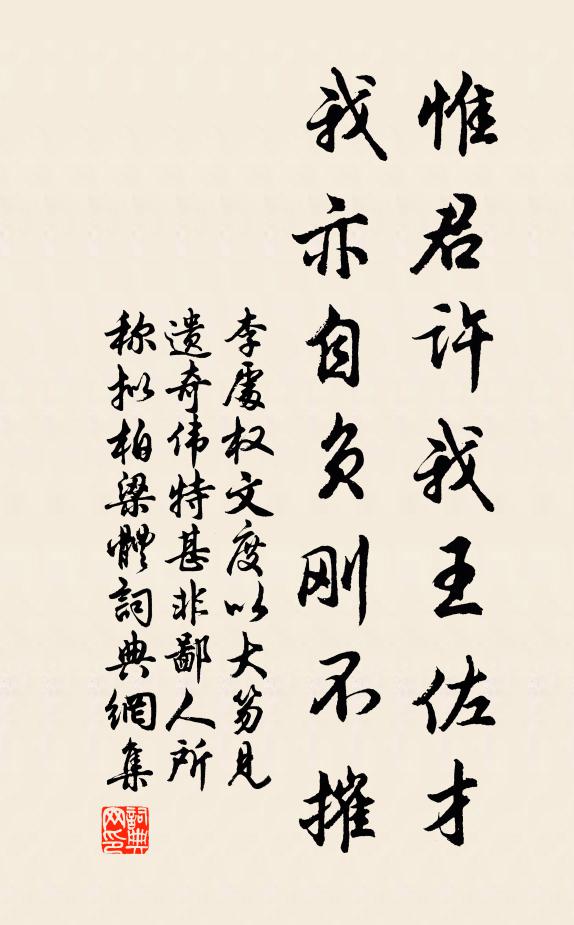 惟君许我王佐才
我亦自负刚不摧
李處权文度以大笏見
遗奇伟特甚非鄙人所
称拟柏梁體詞典網集
詞典网印